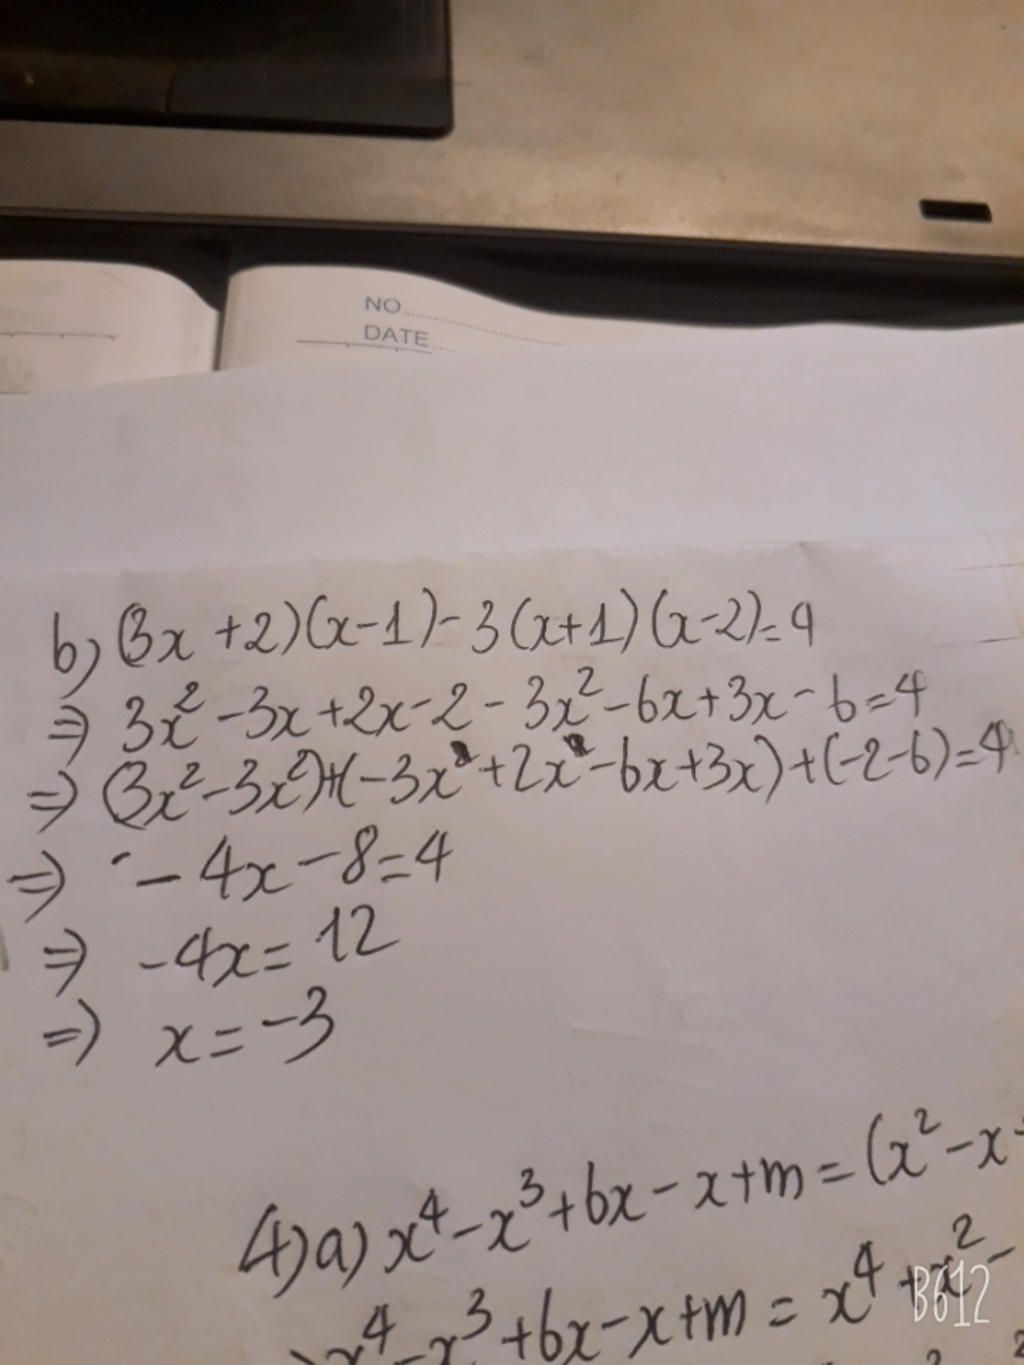 NO
DATE
b) (3x+2)(x-1)-3(x+1)(x-2)=4
⇒ 3x²-3x+2x-2-3x²-6x+3x-6=4
⇒ (3x²-3x²)+(-3x+2x-6x+3x)+(-2-6)=4
⇒ -4x-8=4
⇒ -4x=12
⇒ x=-3
4)a) x⁴-x³+6x-x+m=(x²-x
x⁴-x³+6x-x+m=x⁴+x²-
B612